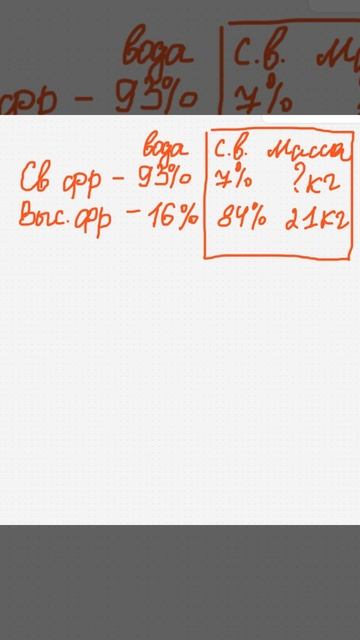 вода с.в. Ма
фр - 93% 7%
вода с.в. Масса
Св фр - 93% 7% ?кг
Выс. фр - 16% 84% 21кг